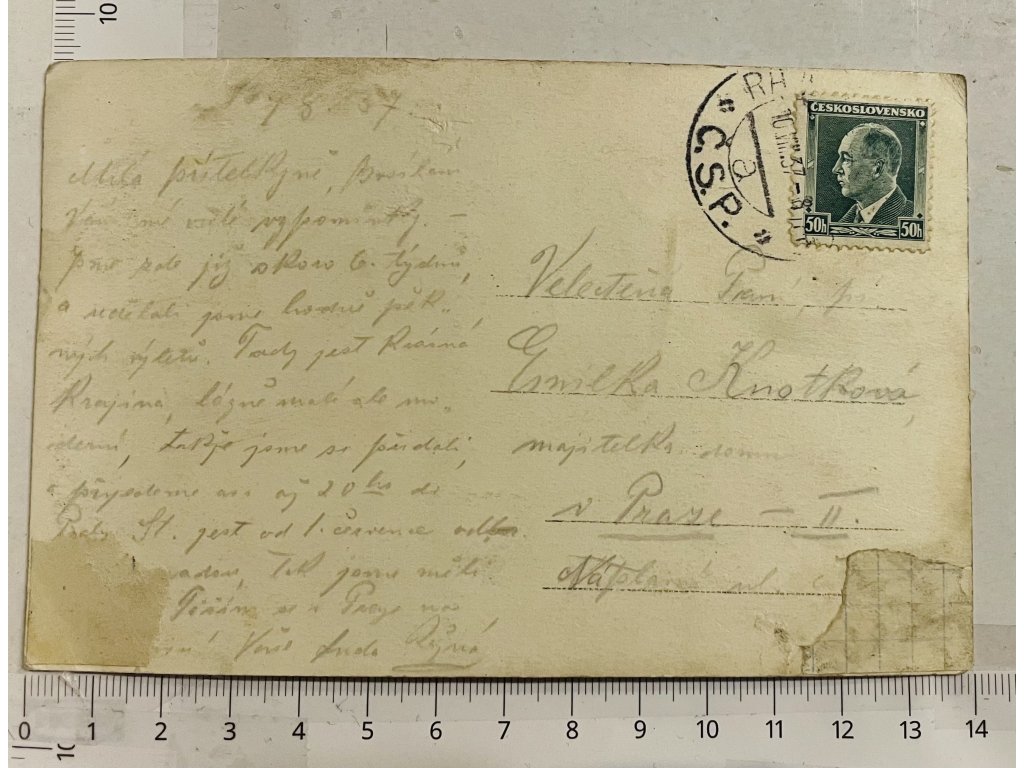 8 37
Milá přítelkyně,
Vám mé vzpomínky. —
jsme zde již skoro 6. týdnů,
a udělali jsme hodně pěk-
ných výletů. Tady jest krásná
Krajina, lázně malé ale mo-
derní, takže jsme se přidali,
přijedeme asi až 20 ho do
Prahy. St. jest od 1. července
tak jsme měli
Těším se v Praze na
Vaše
RA
"C.S.P."
a
10.VIII.37
ČESKOSLOVENSKO
50h 50h
Velectěná Paní, pí
Emilka Knotková,
majitelka domu
v Praze — II.
Náplavní ul.
10
0 1 2 3 4 5 6 7 8 9 10 11 12 13 14
10